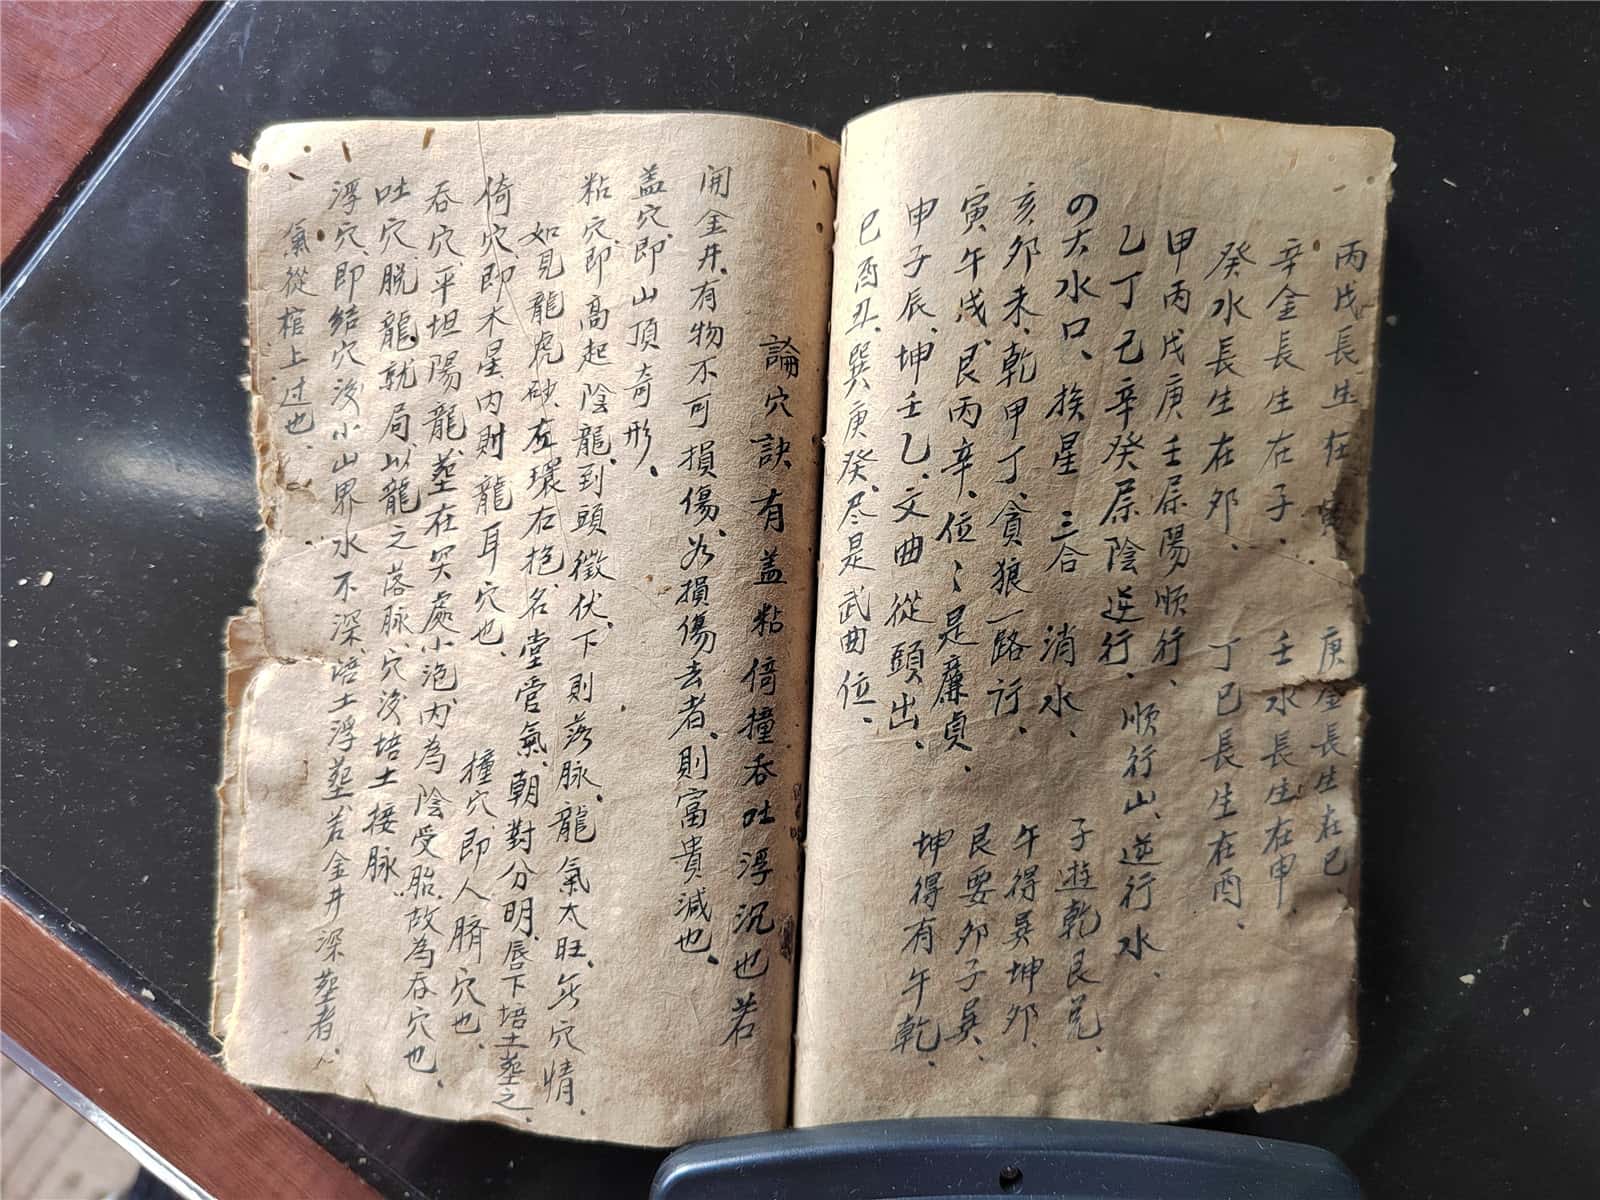 丙戊長生在寅 庚金長生在巳、
辛金長生在子、 壬水長生在申、
癸水長生在夘、 丁巳長生在酉、
甲丙戊庚壬屬陽順行、
乙丁己辛癸屬陰逆行、順行山、逆行水、
の大水口、挨星 三合 消水、 子逰乾艮兌、
亥夘未、乾甲丁、貪狼一路行、 午得巽坤夘、
寅午戌、艮丙辛、位〻是廉貞、 艮要夘子巽、
申子辰、坤壬乙、文曲從頭出、 坤得有午乾、
巳酉丑、巽庚癸、尽是武曲位、
論穴訣有盖粘倚撞吞吐浮沉也若
開金井、有物不可損傷、為損傷去者、則富貴減也、
盖穴、即山頂奇形、
粘穴、即高起陰龍、到頭微伏、下則落脉、龍氣太旺、無穴情、
如見龍虎砂、左環右抱、名堂管氣、朝對分明、唇下培土塟之、
倚穴、即木星内則龍耳穴也、 撞穴、即人臍穴也、
吞穴、平坦陽龍、塟在突處、小泡内為陰受胎、故為吞穴也、
吐穴、脱龍就局、以龍之落脉、穴後培土接脉、
浮穴、即結穴後小山界水不深、培土浮塟、若金井深塟者、
氣從棺上过也、